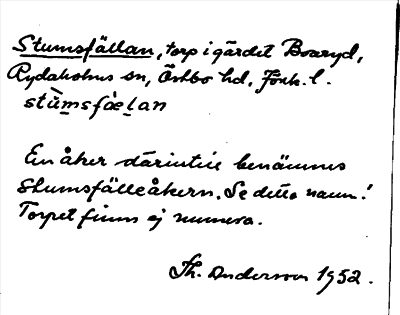 Stumsfällan, torp i gärdet Boaryd,
Rydaholms sn, Östbo hd, Jönk. l.
stùmsfæ̀lan
En åker därintill benämnes
Stumsfälleåkern. Se detta namn!
Torpet finns ej numera.
Th. Andersson 1952.